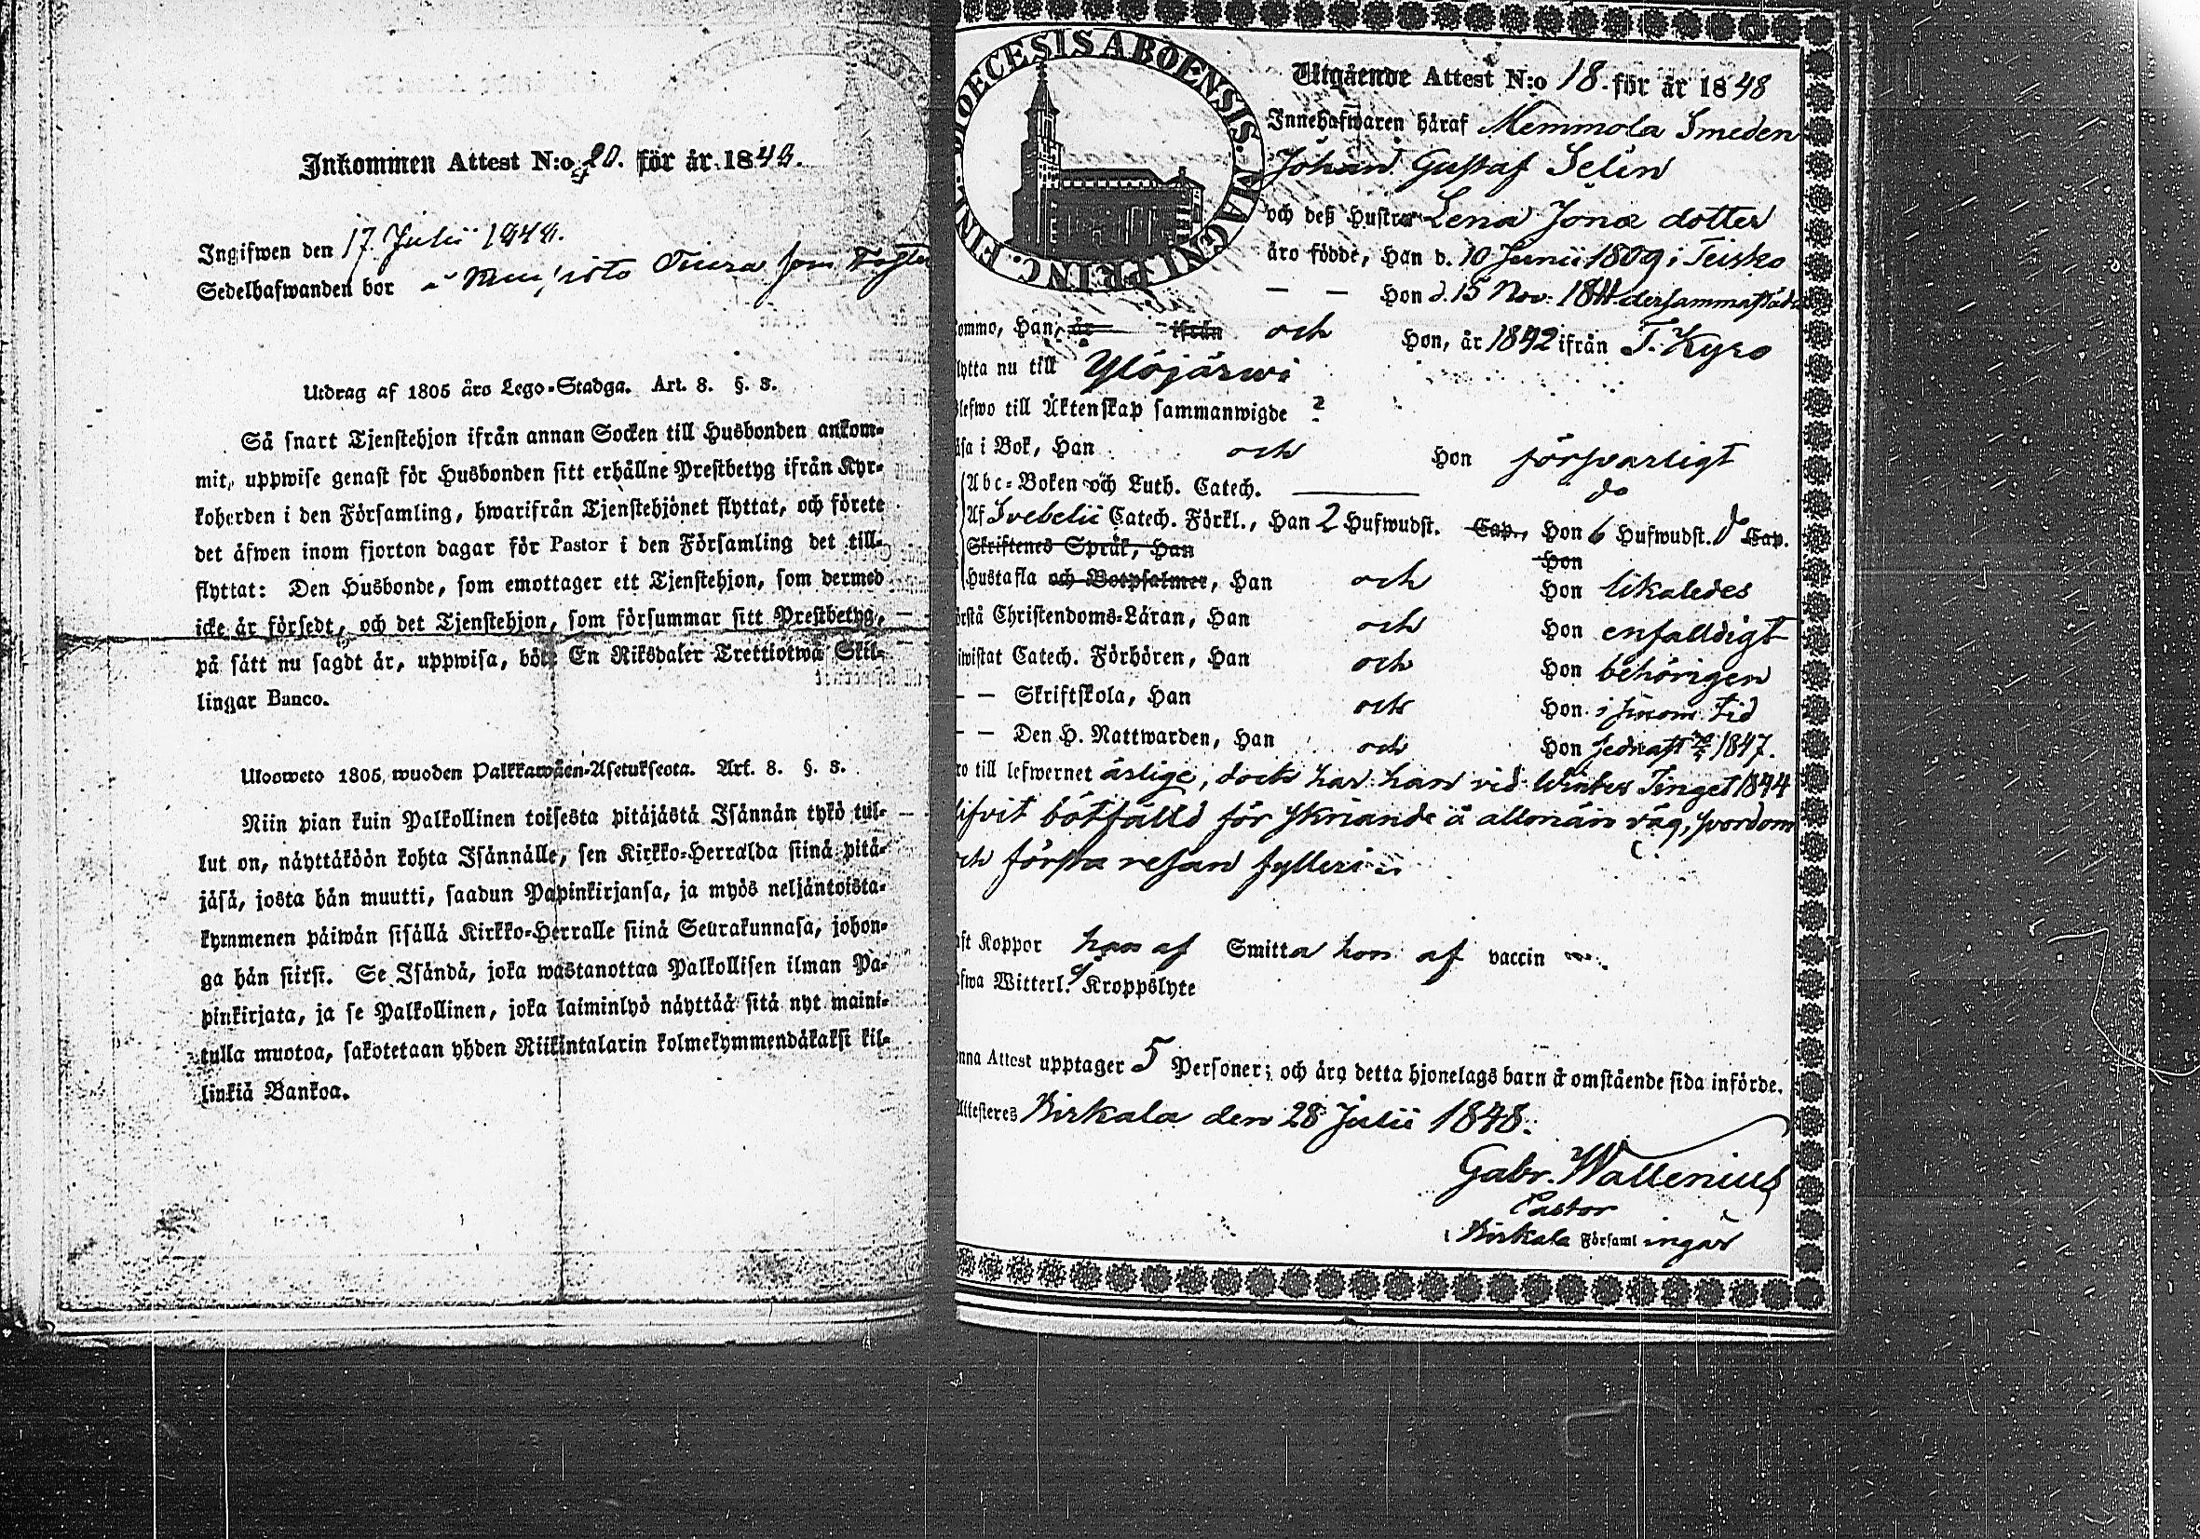 Inkommen Attest N:o 20. för år 1848.
Ingifwen den 17 Julii 1848.
Sedelhafwanden bor
Utdrag af 1805 års Lego-Stadga. Art. 8. §. 3.
Så snart Tjenstehjon ifrån annan Socken till Husbonden ankom-
mit, uppwise genast för Husbonden sitt erhållne Prestbetyg ifrån Kyr-
koherden i den Församling, hwarifrån Tjenstehjonet flyttat, och förete
det äfwen inom fjorton dagar för Pastor i den Församling det till-
flyttat: Den Husbonde, som emottager ett Tjenstehjon, som dermed
icke är försedt, och det Tjenstehjon, som försummar sitt Prestbetyg,
på sätt nu sagdt är, uppwisa, böte En Riksdaler Trettiotwå Skil-
lingar Banco.
Ulosweto 1805 wuoden Palkkawäen-Asetuksesta. Art. 8. §. 3.
Niin pian kuin Palkollinen toisesta pitäjästä Isännän tykö tul-
lut on, näyttäköön kohta Isännälle, sen Kirkko-Herralda siinä pitä-
jäsä, josta hän muutti, saadun Papinkirjansa, ja myös neljäntoista-
kymmenen päiwän sisällä Kirkko-Herralle siinä Seurakunnasa, johon-
ga hän siirsi. Se Isändä, joka wastanottaa Palkollisen ilman Pa-
pinkirjata, ja se Palkollinen, joka laiminlyö näyttää sitä nyt maini-
tulla muotoa, sakotetaan yhden Riikintalarin kolmekymmendäkaksi kil-
linkiä Bankoa.
DIOECESIS ABOENSIS. MAGNI PRINC. FINL.
Utgående Attest N:o 18. för år 1848
Innehafwaren häraf Memmola Smeden
Johan Gustaf Selin
och deß Hustru Lena Jonæ dotter
äro födde, Han d. 10 Junii 1809 i Teisko
— — Hon d. 15 Nov. 1811 dersammastädes
kommo, Han, år ifrån och Hon, år 1842 ifrån T. Kyro
flytta nu till Ylöjärwi
blefwo till Äktenskap sammanwigde ?
läsa i Bok, Han och Hon försvarligt
Abc-Boken och Luth. Catech. — do
Af Svebelii Catech. Förkl., Han 2 Hufwudst. Cap., Hon 6 Hufwudst. Cap.
Skriftenes Språk, Han Hon
Hustafla och Botpsalmer, Han och Hon likaledes
förstå Christendoms-Läran, Han och Hon enfalldigt
biwistat Catech. Förhören, Han och Hon behörigen
— — Skriftskola, Han och Hon i sinom tid
— — Den H. Nattwarden, Han och Hon sednast 1847.
äro till lefwernet ärlige, dock har han vid Winter Tinget 1844
blifvit bötfälld för skriande å allmän väg, svordom
och första resan fylleri
haft Koppor han af Smitta hon af vaccin
hafwa Witterl. Kroppslyte
Denna Attest upptager 5 Personer; och äro detta hjonelags barn å omstående sida införde.
Attesteres Birkala den 28 Julii 1848.
Gabr. Wallenius
Pastor
i Birkala Församlingar